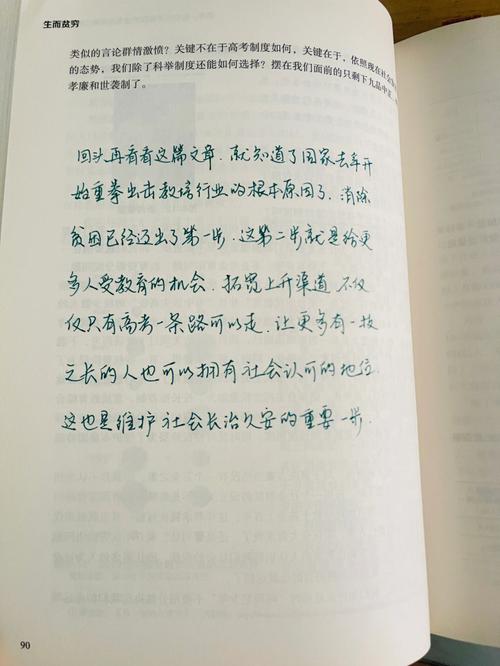 生而贫穷
类似的言论群情激愤？关键不在于高考制度如何，关键在于，依照现在社会
的态势，我们除了科举制度还能如何选择？摆在我们面前的只剩下九品中正、
孝廉和世袭制了。
回头再看看这篇文章，就知道了国家去年开
始重拳出击教培行业的根本原因了，消除
贫困已经迈出了第一步，这第二步就是给更
多人受教育的机会，拓宽上升渠道，不仅
仅只有高考一条路可以走，让更多有一技
之长的人也可以拥有社会认可的地位，
这也是维护社会长治久安的重要一步.
90